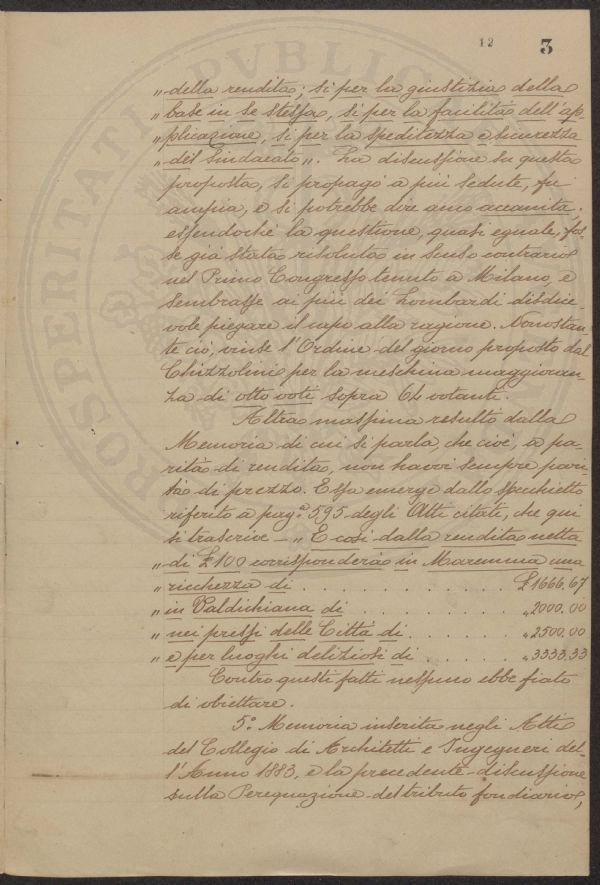 12 3
„ della rendita; si per la giustizia della
„ base in se stessa, si per la facilità dell'ap-
„ plicazione, si per la speditezza e sicurezza
„ del Sindacato „. La discussione su questa
proposta, si propagò a più sedute, fu
ampia, e si potrebbe dire anco accanita,
essendochè la questione, quasi eguale, fos-
se già stata risoluta in senso contrario
nel Primo Congresso tenuto a Milano, e
sembrasse ai più dei Lombardi disdice
vole piegare il capo alla ragione. Nonostan-
te ciò, vinse l'Ordine del giorno proposto dal
Chizzolini per la meschina maggioran-
za di otto voti sopra 64 votanti.
Altra massima resultò dalla
Memoria di cui si parla, che cioè, a pa-
rità di rendita, non havvi sempre pari-
tà di prezzo. Essa emerge dallo specchietto
riferito a pag.ª 595 degli Atti citati, che qui
si trascrive – „ E così dalla rendita netta
„ di £ 100 corrisponderà in Maremma una
„ ricchezza di . . . . . . . . . . . £ 1666,67
„ in Valdichiana di . . . . . . . . „ 2000.00
„ nei pressi delle Città di . . . . . . „ 2500.00
„ e per luoghi deliziosi di . . . . . „ 3333.33
Contro questi fatti nessuno ebbe fiato
di obiettare.
5.º Memoria inserita negli Atti
del Collegio di Architetti e Ingegneri del-
l'Anno 1883, e la precedente discussione
sulla Perequazione del tributo fondiario,
PROSPERITATI PVBLIC